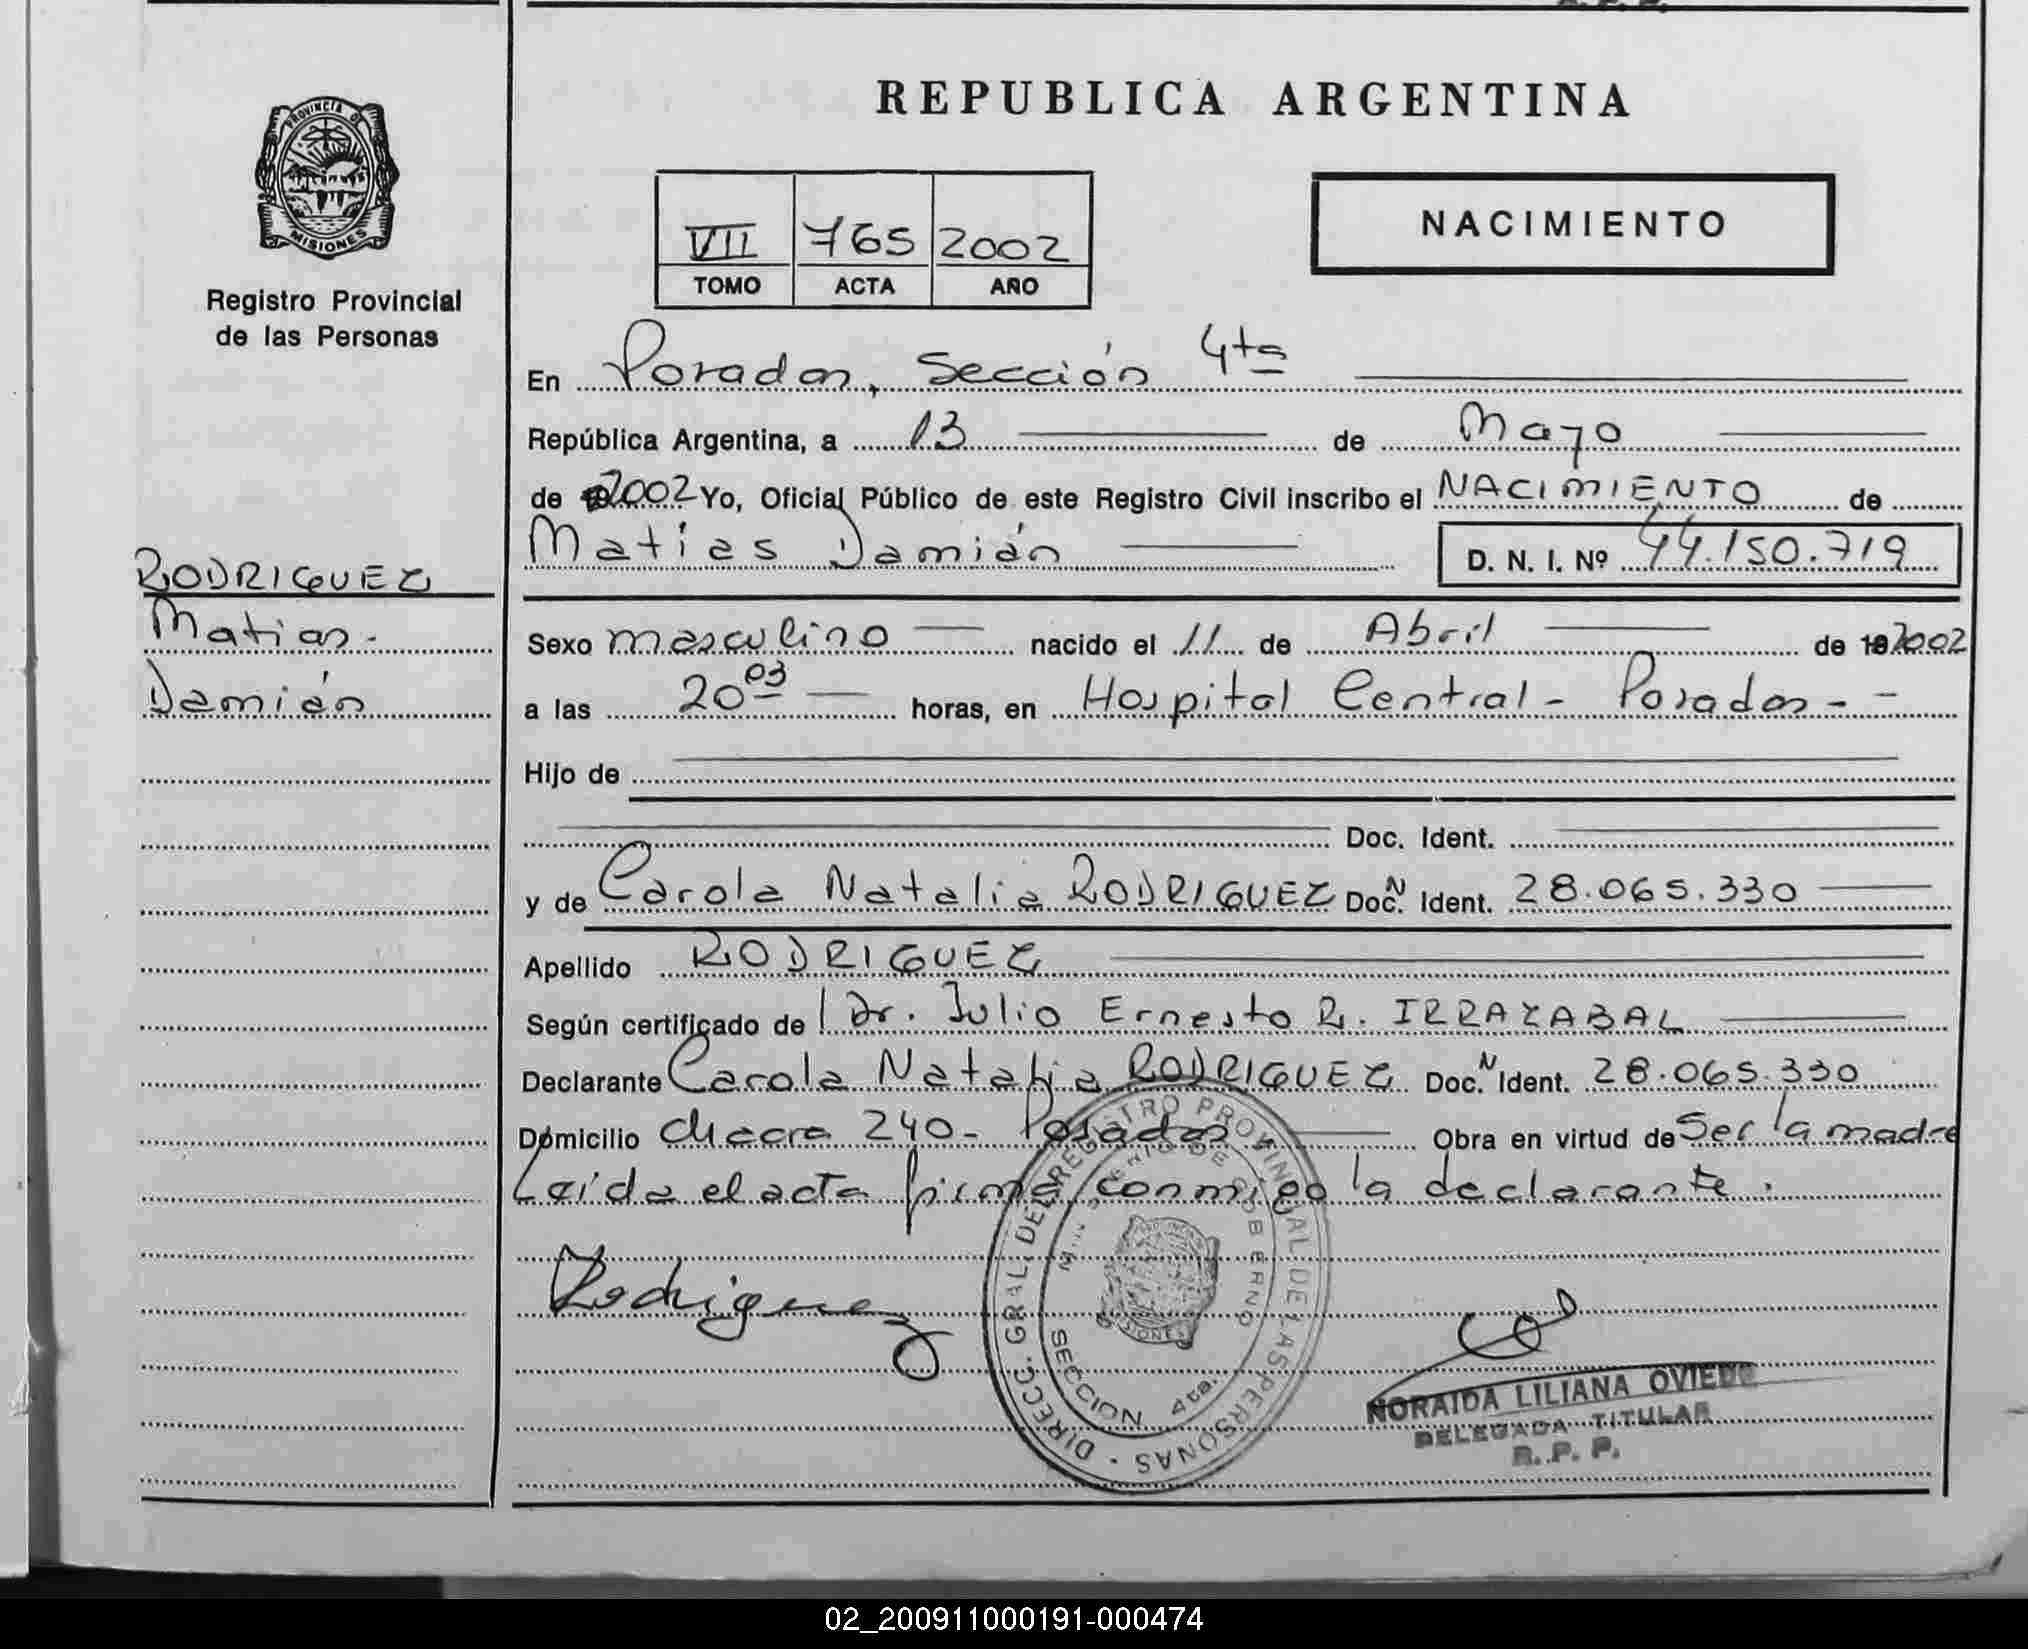 REPUBLICA ARGENTINA
PROVINCIA DE
MISIONES
Registro Provincial
de las Personas
NACIMIENTO
VII 765 2002
TOMO ACTA AÑO
En Posadas, Sección 4ta
República Argentina, a 13 de Mayo
de 2002 Yo, Oficial Público de este Registro Civil inscribo el NACIMIENTO de
Matías Damián D. N. I. Nº 44.150.719
RODRIGUEZ
Matias
Damián
Sexo masculino nacido el 11 de Abril de 192002
a las 20 03 horas, en Hospital Central - Posadas - -
Hijo de
Doc. Ident.
y de Carola Natalia RODRIGUEZ Doc. N Ident. 28.065.330
Apellido RODRIGUEZ
Según certificado de Dr. Julio Ernesto R. IRRAZABAL
Declarante Carola Natalia RODRIGUEZ Doc. N Ident. 28.065.330
Domicilio Chacra 240 - Posadas Obra en virtud de Ser la madre
Leída el acta firma conmigo la declarante.
Rodriguez
DIRECC. GRAL. DEL REGISTRO PROVINCIAL DE LAS PERSONAS
DE GOBIERNO
SECCION 4ta.
NORAIDA LILIANA OVIEDO
DELEGADA TITULAR
R. P. P.
02_200911000191-000474